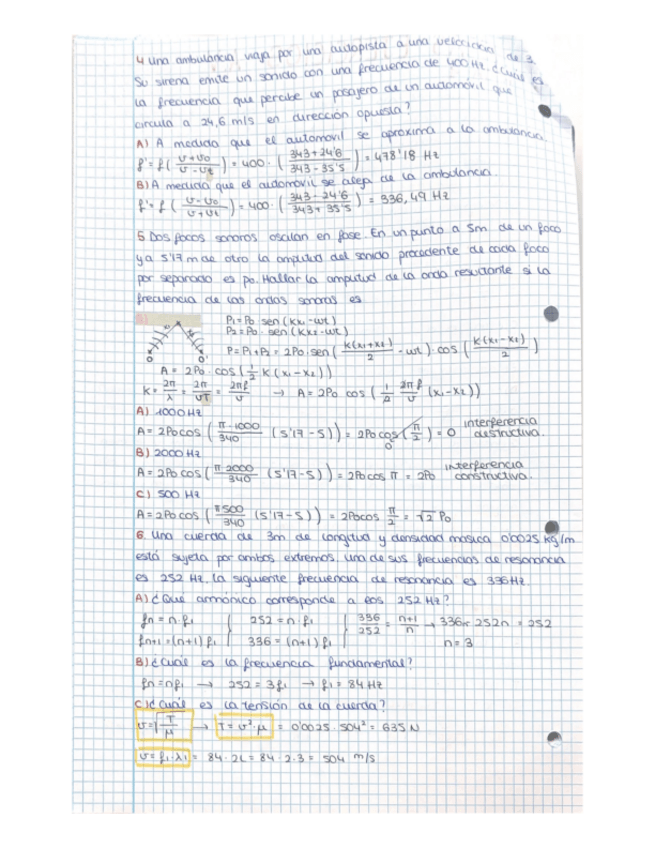 4 Una ambulancia viaja por una autopista a una velocidad de 3
Su sirena emite un sonido con una frecuencia de 400 Hz. ¿Cuál es
la frecuencia que percibe un pasajero de un automóvil que
circula a 24,6 m/s en dirección opuesta?
A) A medida que el automóvil se aproxima a la ambulancia.
f' = f ( (v+v0)/(v-vt) ) = 400 · ( (343+24'6)/(343-35'5) ) = 478'18 Hz
B) A medida que el automóvil se aleja de la ambulancia.
f' = f ( (v-v0)/(v+vt) ) = 400 · ( (343-24'6)/(343+35'5) ) = 336,49 Hz
5 Dos focos sonoros oscilan en fase. En un punto a 5m de un foco
y a 5'17 m de otro la amplitud del sonido procedente de cada foco
por separado es po. Hallar la amplitud de la onda resultante si la
frecuencia de las ondas sonoras es
P1 = P0 sen (kx1 - wt)
P2 = P0 · sen (kx2 - wt)
P = P1 + P2 = 2P0 · sen ( k(x1+x2)/2 - wt ) · cos ( k(x1-x2)/2 )
A = 2P0 · cos ( 1/2 k (x1-x2) )
k = 2π/λ = 2π/vT = 2πf/v → A = 2P0 cos ( 1/2 2πf/v (x1-x2) )
A) 1000 Hz
A = 2P0 cos ( π·1000/340 (5'17-5) ) = 2P0 cos ( π/2 ) = 0 interferencia destructiva.
0
B) 2000 Hz
A = 2P0 cos ( π 2000/340 (5'17-5) ) = 2P0 cos π = 2P0 interferencia constructiva.
C) 500 Hz
A = 2P0 cos ( π500/340 (5'17-5) ) = 2P0 cos π/2 = √2 P0
6. Una cuerda de 3m de longitud y densidad masica 0'0025 kg/m
está sujeta por ambos extremos. Una de sus frecuencias de resonancia
es 252 Hz. La siguiente frecuencia de resonancia es 336 Hz
A) ¿Qué armónico corresponde a los 252 Hz?
fn = n · f1 } 252 = n · f1 | 336/252 = (n+1)/n → 336n = 252n + 252
fn+1 = (n+1) f1 } 336 = (n+1) f1 | n = 3
B) ¿Cuál es la frecuencia fundamental?
fn = nf1 → 252 = 3f1 → f1 = 84 Hz
C) ¿Cuál es la tensión de la cuerda?
v = √(T/μ) → T = v² · μ = 0'0025 · 504² = 635 N
v = f1 · λ1 = 84 · 2L = 84 · 2 · 3 = 504 m/s